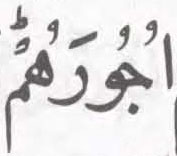 اُجُوْرَهُمْؕ